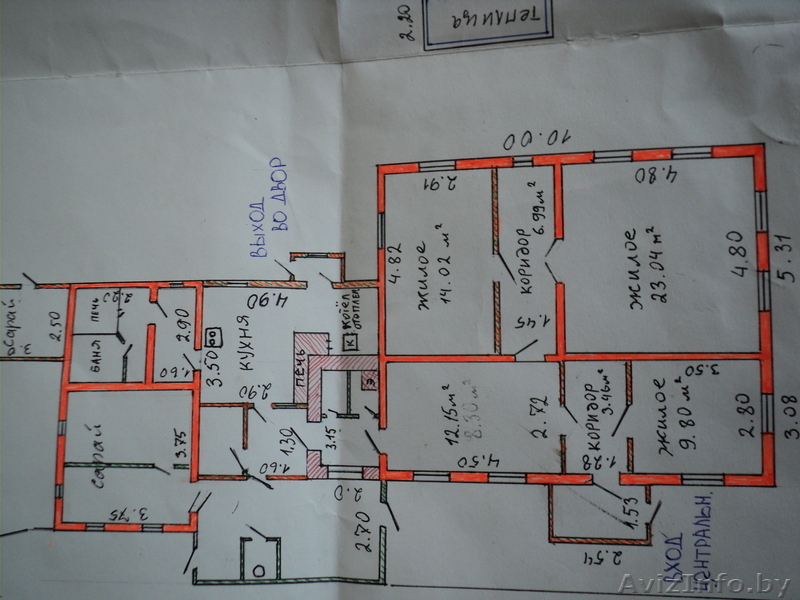 2.20
ТЕПЛИЦА
10.00
ВЫХОД
ВО ДВОР
2.91
4.82
ЖИЛОЕ
14.02 м²
КОРИДОР
6.99 м²
1.45
4.80
ЖИЛОЕ
23.04 м²
4.80
5.31
САРАЙ
2.50
ПЕЧЬ
БАНЯ
2.90
1.60
4.90
КУХНЯ
3.50
2.90
ПЕЧЬ
К
КОТЁЛ
ОТОПЛЕН
Э
САРАЙ
3.75
3.75
1.30
1.60
3.15
2.0
2.70
12.15 м²
8.30 м²
2.72
4.50
КОРИДОР
3.46 м²
1.28
3.50
ЖИЛОЕ
9.80 м²
2.80
3.08
1.53
2.54
ВХОД
ЦЕНТРАЛЬН.
AvizInfo.by